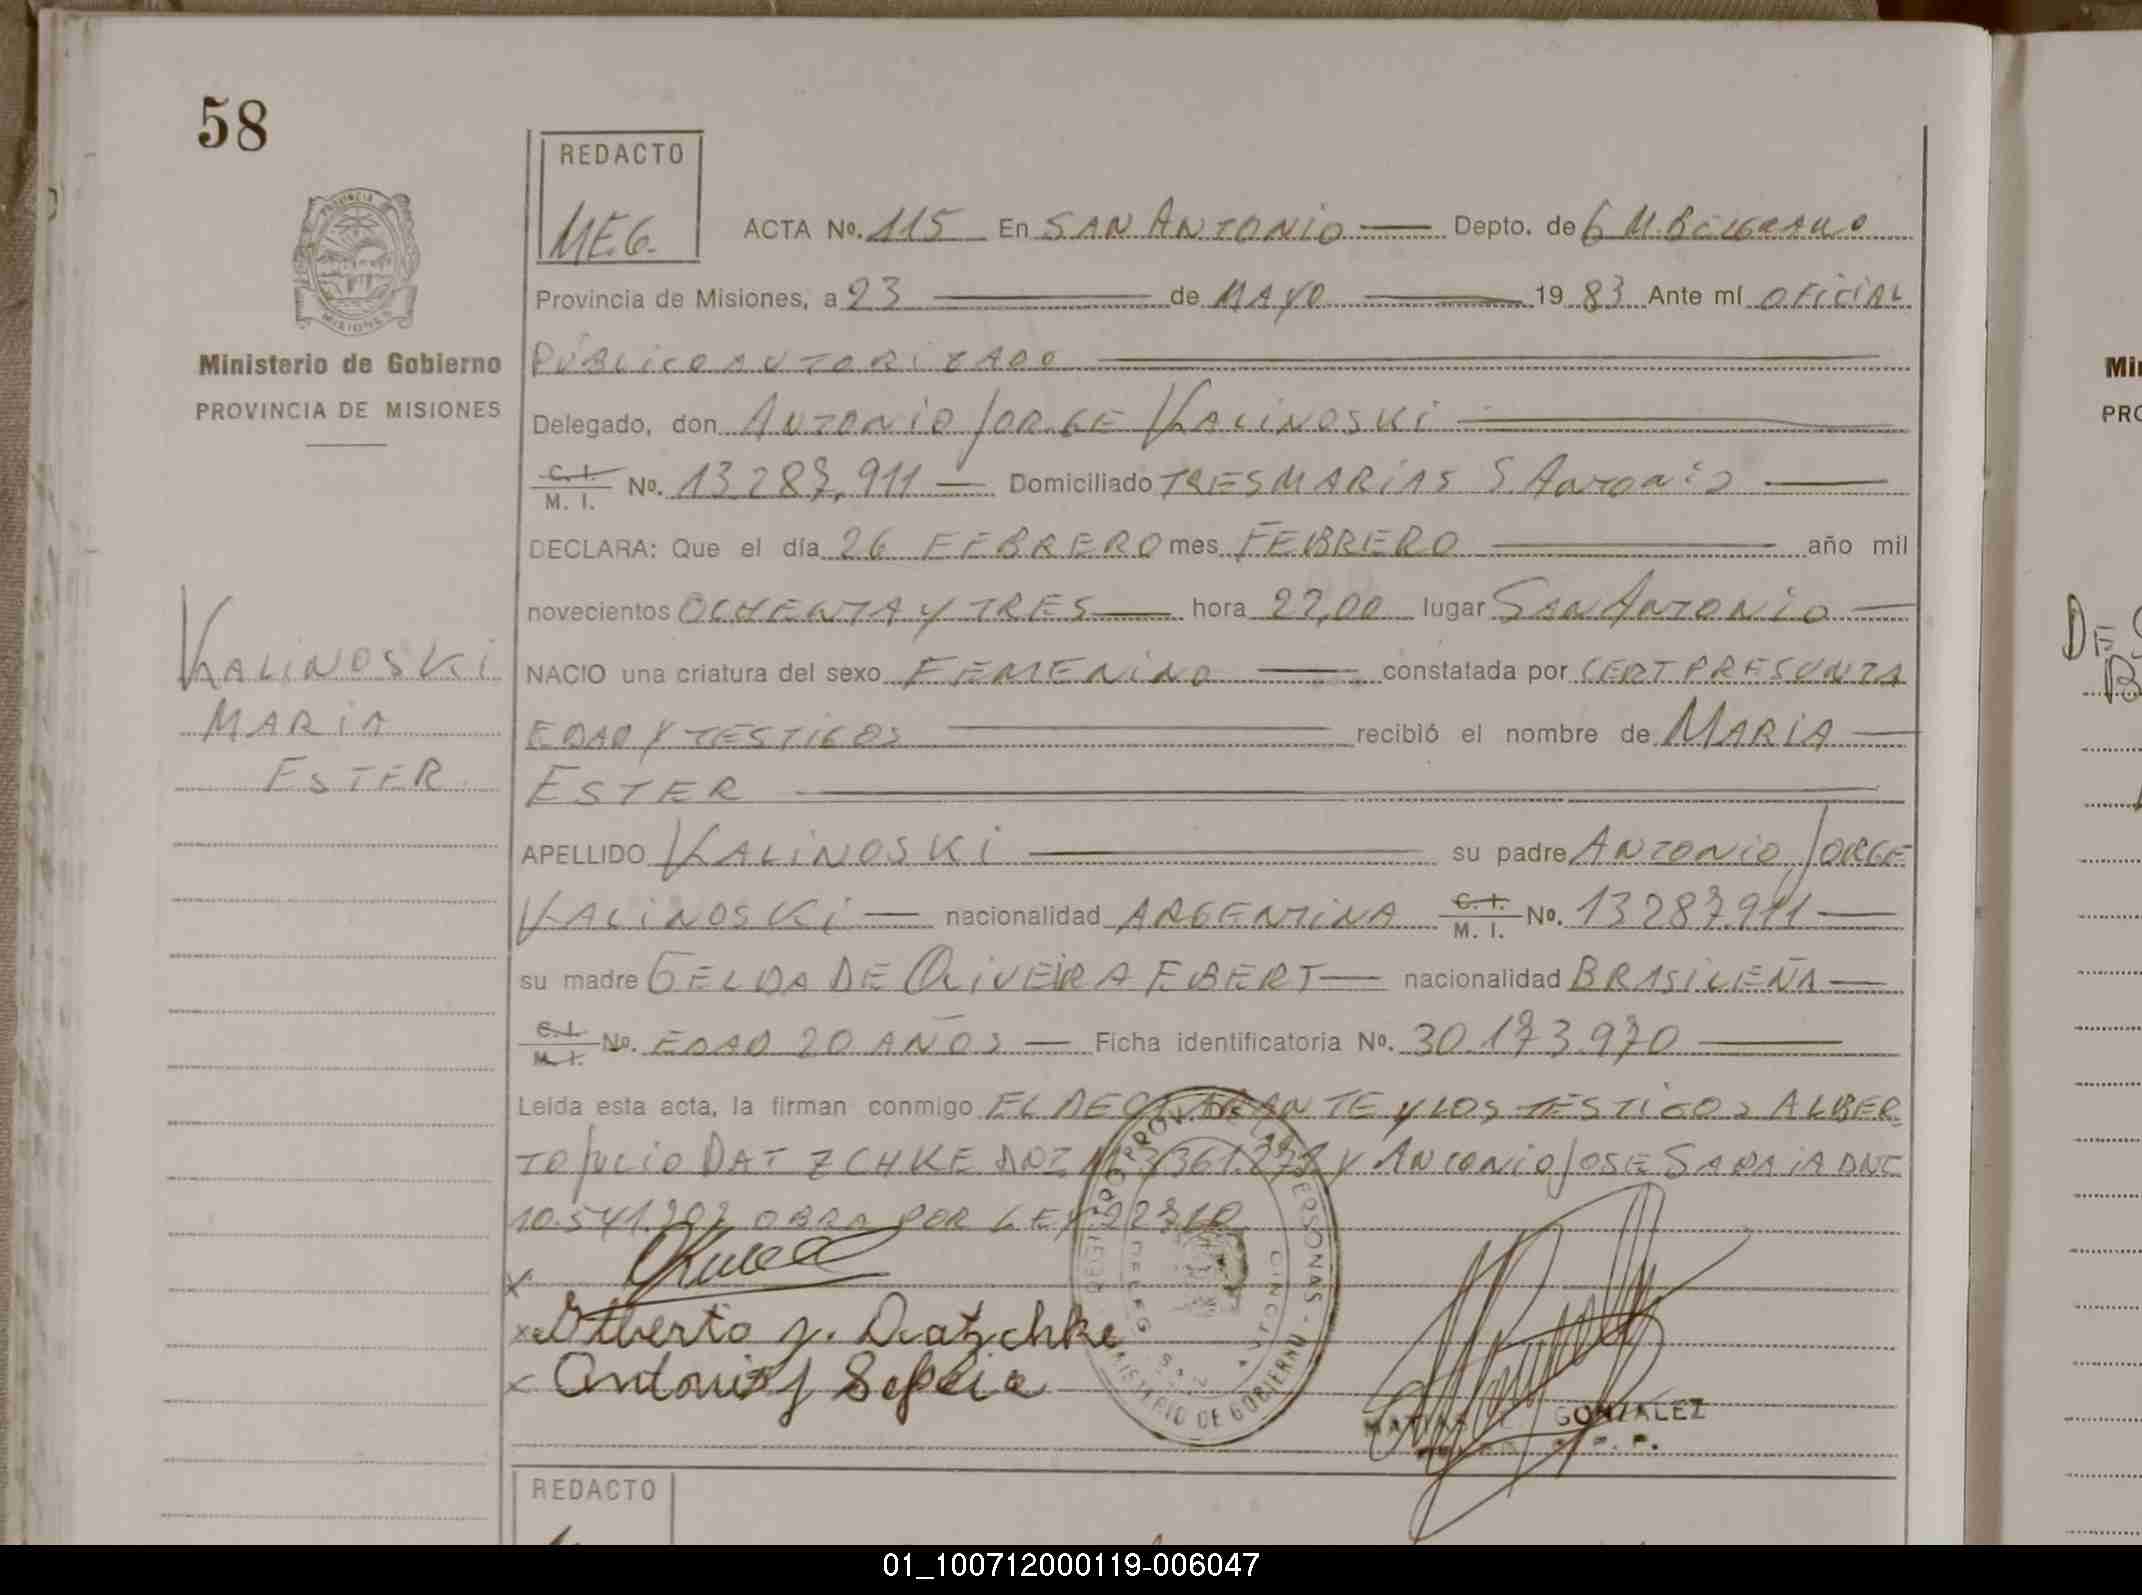 58
REDACTO
M.E.G.
ACTA No. 115 En SAN ANTONIO Depto. de G M. BELGRANO
Provincia de Misiones, a 23 de MAYO 19 83 Ante mí OFICIAL
Ministerio de Gobierno
PROVINCIA DE MISIONES
PÚBLICO AUTORIZADO
Delegado, don ANTONIO JORGE KALINOSKI
C. I. M. I. No. 13.287.911 Domiciliado TRES MARIAS S. ANTONIO
DECLARA: Que el día 26 FEBRERO mes FEBRERO año mil
novecientos OCHENTA Y TRES hora 22,00 lugar SAN ANTONIO
KALINOSKI
MARIA
ESTER
NACIO una criatura del sexo FEMENINO constatada por CERT PRESUNTA
EDAD Y TESTIGOS recibió el nombre de MARIA
ESTER
APELLIDO KALINOSKI su padre ANTONIO JORGE
KALINOSKI nacionalidad ARGENTINA C. I. M. I. No. 13287.911
su madre GELDA DE OLIVEIRA EBERT nacionalidad BRASILEÑA
C. I. M. I. No. EDAD 20 AÑOS Ficha identificatoria No. 30.173.970
Leída esta acta, la firman conmigo EL DECLARANTE Y LOS TESTIGOS ALBER-
TO JULIO DATZCHKE Y ANTONIO JOSE SAPAIA DNI
10.541.202 OBRA POR LEY
Alberto J. Datzchke
Antonio J
MATIAS GONZALEZ
REDACTO
Min
PRO
DE S
B
01_100712000119-006047